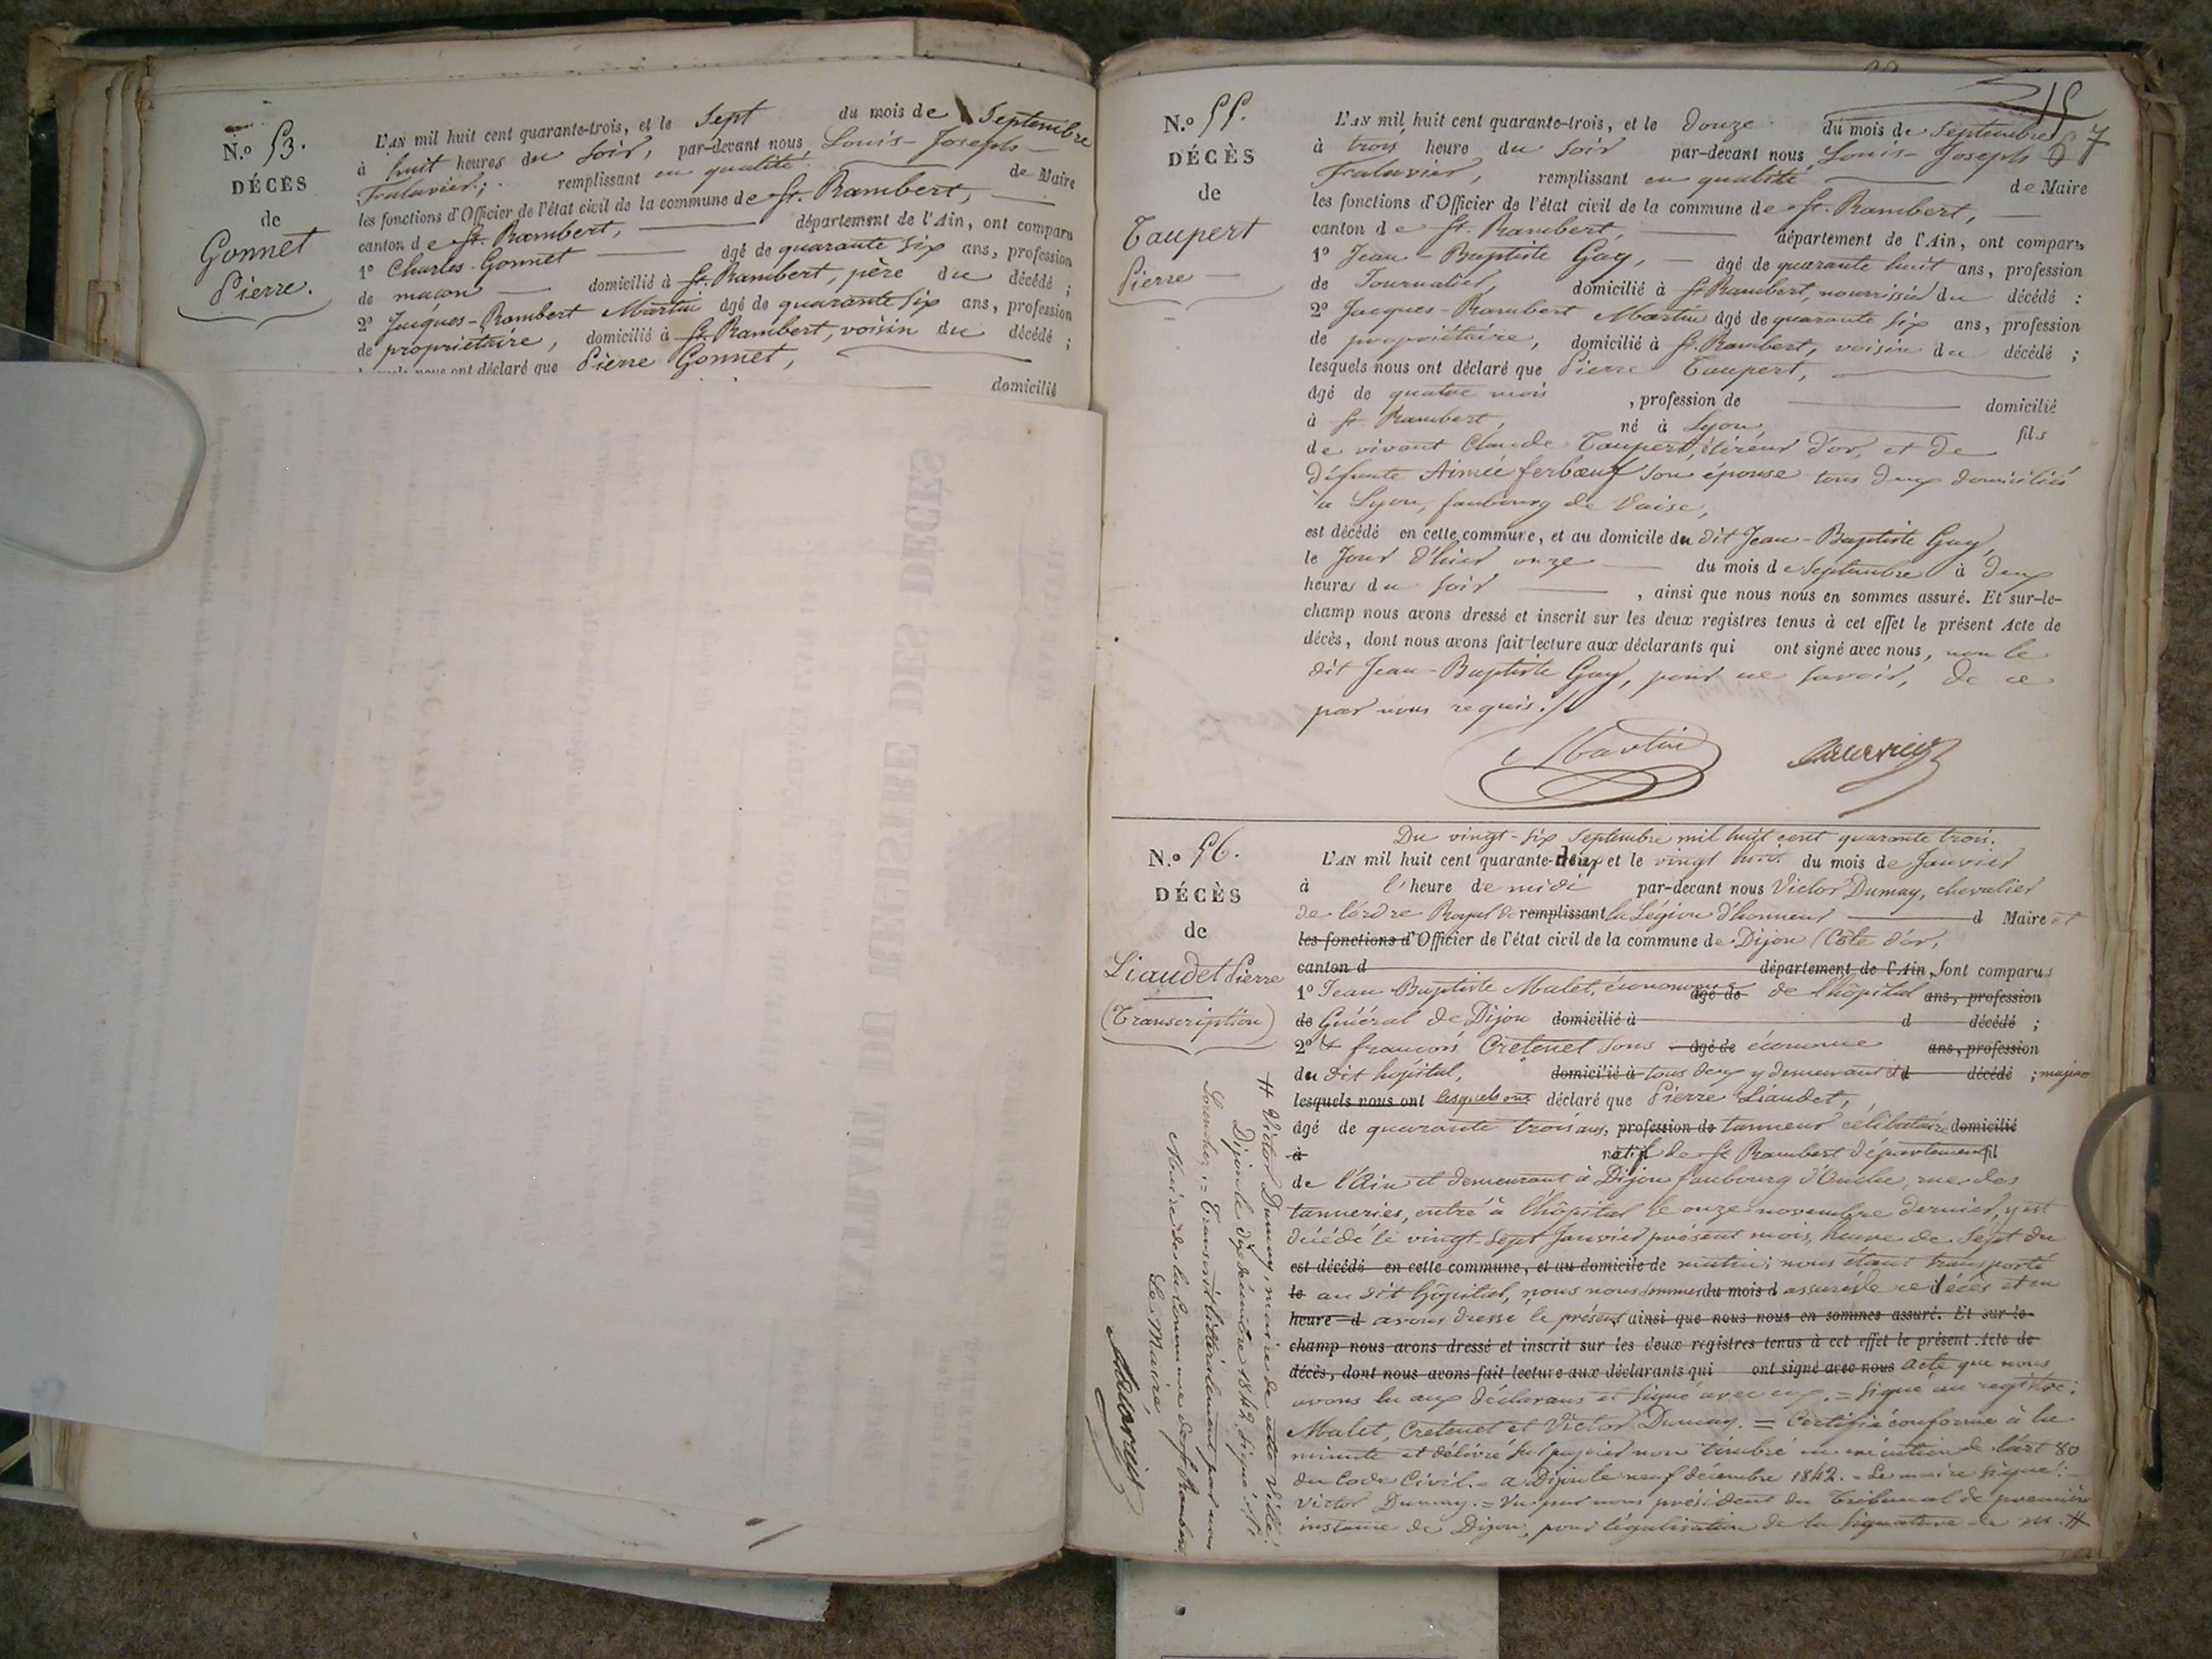 N.o 53.
DÉCÈS
de
Gonnet
Pierre.
L'AN mil huit cent quarante-trois, et le Sept du mois de Septembre
à huit heures du Soir, par-devant nous Louis-Joseph
remplissant en qualité de Maire
les fonctions d'Officier de l'état civil de la commune de St. Rambert,
canton de St. Rambert, département de l'Ain, ont comparu
1º Charles Gonnet agé de quarante six ans, profession
de maçon domicilié à St. Rambert, père du décédé ;
2º Jacques-Rambert Martin agé de quarante six ans, profession
de propriétaire, domicilié à St. Rambert, voisin du décédé ;
nous ont déclaré que Pierre Gonnet,
domicilié
15
67
N.o 55.
DÉCÈS
de
Taupert
Pierre
L'AN mil huit cent quarante-trois, et le douze du mois de Septembre
à trois heure du Soir par-devant nous Louis-Joseph
remplissant en qualité de Maire
les fonctions d'Officier de l'état civil de la commune de St. Rambert,
canton de St. Rambert, département de l'Ain, ont comparu
1º Jean-Baptiste Guy, agé de quarante huit ans, profession
de Journalier, domicilié à St Rambert, nourrissier du décédé :
2º Jacques-Rambert Martin agé de quarante six ans, profession
de propriétaire, domicilié à St. Rambert, voisin du décédé ;
lesquels nous ont déclaré que Pierre Taupert,
agé de quatre mois , profession de domicilié
à St. Rambert, né à Lyon, fils
de vivant Claude Taupert, tireur d'or, et de
défunte Aimée ferbœuf son épouse tous deux domiciliés
à Lyon, faubourg de Vaise,
est décédé en cette commune, et au domicile du dit Jean-Baptiste Guy,
le Jour d'hier onze du mois de Septembre à deux
heures du Soir , ainsi que nous nous en sommes assuré. Et sur-le-
champ nous avons dressé et inscrit sur les deux registres tenus à cet effet le présent Acte de
décès, dont nous avons fait lecture aux déclarants qui ont signé avec nous, non le
dit Jean-Baptiste Guy, pour ne savoir, de ce
par nous requis.
Martin
N.o 56.
DÉCÈS
de
Liaudet Pierre
(Transcription)
Du vingt-six Septembre mil huit cent quarante trois.
L'AN mil huit cent quarante-deux et le vingt huit du mois de Janvier
à l'heure de midi par-devant nous Victor Dumay, chevalier
de l'ordre Royal de remplissant la Légion d'honneur d Maire et
les fonctions d'Officier de l'état civil de la commune de Dijon (Côte d'or,
canton d département de l'Ain, Sont comparus
1º Jean Baptiste Mulet, économe agé de de l'hôpital ans, profession
de Général de Dijon domicilié à d décédé ;
2º & françois Cretenet sous agé de économe ans, profession
du dit hôpital, domicilié à tous deux y demeurant et d décédé ; majeurs
lesquels nous ont lesquels ont déclaré que Pierre Liaudet,
agé de quarante trois ans, profession de tanneur célibataire domicilié
à natif de St Rambert département fil
de l'Ain et demeurant à Dijon faubourg d'Ouche, rue des
tanneries, entré à l'hôpital le onze novembre dernier, y est
décédé le vingt-sept Janvier présent mois, heure de Sept du
est décédé en cette commune, et au domicile de matin; nous étant transporté
le au dit hôpital, nous nous sommes du mois d assuré de ce décès et en
heure d avons dressé le présent ainsi que nous nous en sommes assuré. Et sur-le-
champ nous avons dressé et inscrit sur les deux registres tenus à cet effet le présent Acte de
décès, dont nous avons fait lecture aux déclarants qui ont signé avec nous acte que nous
avons lu aux déclarans et Signé avec eux. = Signé au registre :
Mulet, Cretenet et Victor Dumay. = Certifié conforme à la
minute et délivré sur papier non timbré en exécution de l'art 80
du Code Civil. = a Dijon le neuf décembre 1842. = Le maire Signé :
Victor Dumay. = Vu par nous président du Tribunal de première
instance de Dijon, pour légalisation de la Signature de M. #
# Victor Dumay, maire de cette ville.
Dijon le dix décembre 1842. Signé :
= Transcrit littéralement par nous
Maire de la commune de St Rambert
Le Maire,
EXTRAIT DU REGISTRE DES DÉCÈS